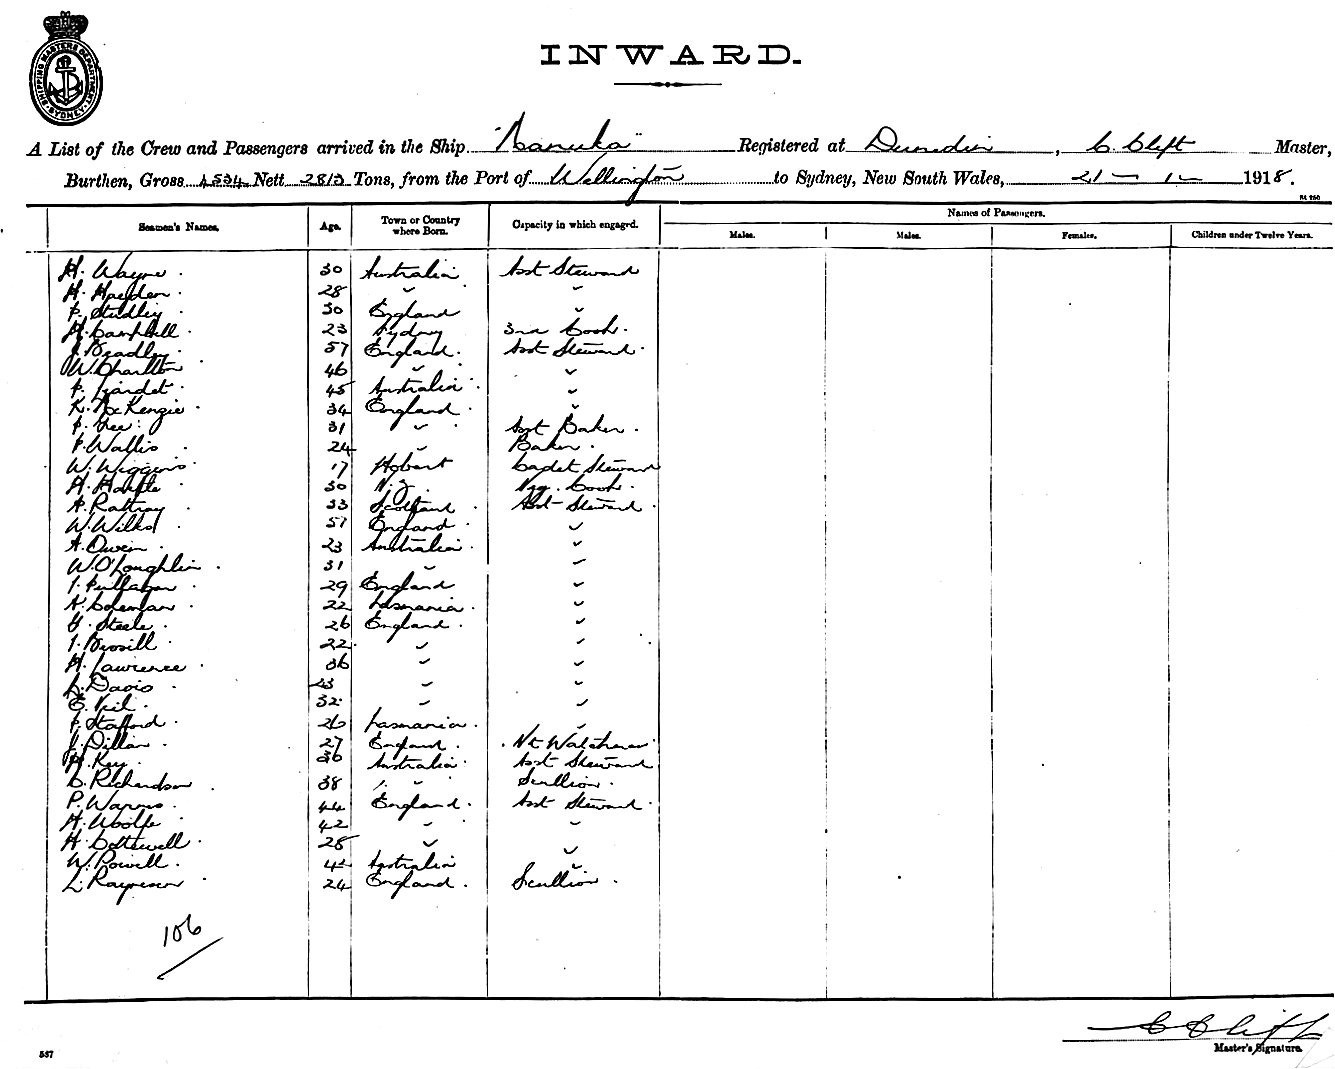 SHIPPING MASTERS DEPARTMENT SYDNEY
INWARD.
A List of the Crew and Passengers arrived in the Ship "Manuka" Registered at Dunedin, C. Cliff Master,
Burthen, Gross 4534 Nett 2813 Tons, from the Port of Wellington to Sydney, New South Wales, 21 - 1 - 1918.
Names of Passengers.
Seamen's Names. Age. Town or Country where Born. Capacity in which engaged. Males. Males. Females. Children under Twelve Years.
H. Wayne 30 Australia Asst Steward
H. Hayden 28 " "
P. Studley 30 England "
H. Campbell 23 Sydney 3rd Cook
J. Bradley 57 England Asst Steward
W. Charlton 46 " "
P. Liardet 45 Australia "
K. McKenzie 34 England "
P. Gee 31 " Asst Baker
P. Wallis 24 " Baker
W. Wiggins 17 Hobart Cadet Steward
H. 30 N.Z. Veg. Cook
A. Rattray 33 Scotland Asst Steward
W. Wilks 57 England "
A. Owen 23 Australia "
W. O'Loughlin 31 " "
29 England "
H. Coleman 22 Tasmania "
G. Steele 26 England "
22 " "
H. Lawrence 36 " "
L. Davis 23 " "
E. Neil 32 " "
P. Stafford 26 Tasmania "
J. Dillon 27 England Nt Watchman
H. Key 36 Australia Asst Steward
C. Richardson 38 " Scullion
P. Warns 44 England Asst Steward
H. Woolfe 42 " "
H. Cottewell 28 " "
W. Powell 42 Australia "
L. 24 England Scullion
106
C Cliff
Master's Signature.
537